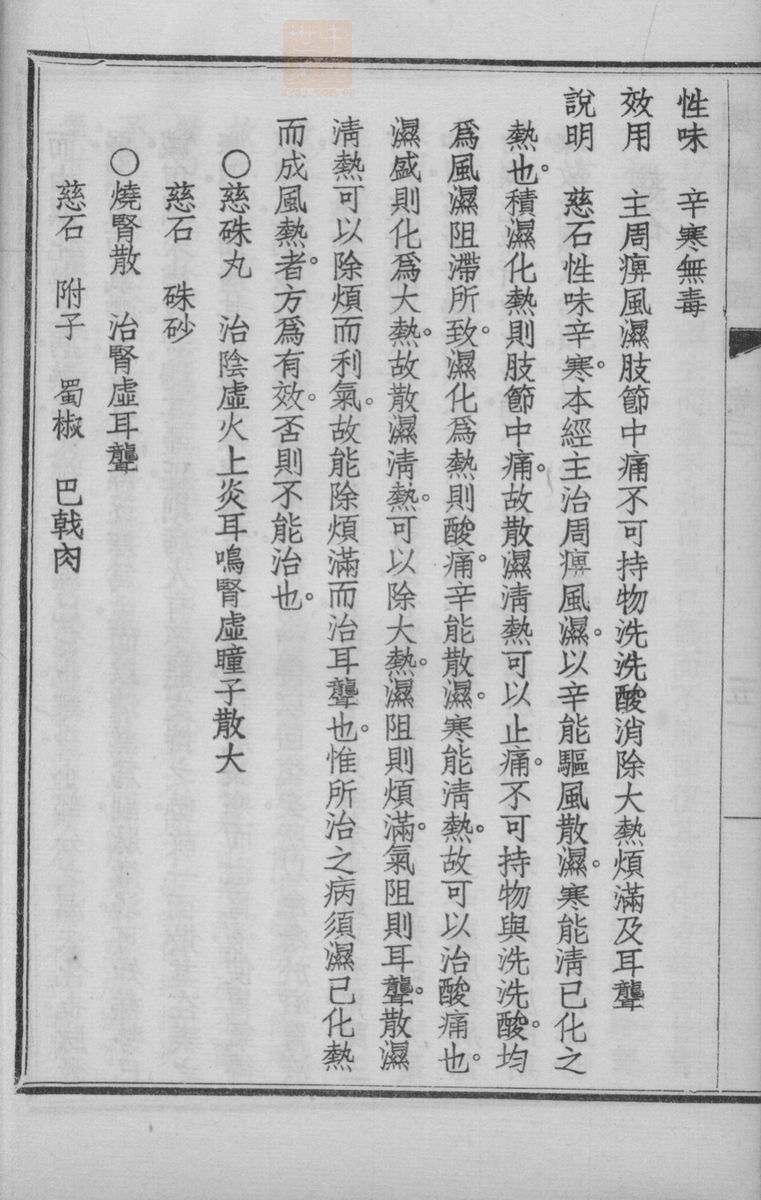 性味　辛寒無毒
效用　主周痹風濕肢節中痛不可持物洗洗酸消除大熱煩滿及耳聾
說明　慈石性味辛寒。本經主治周痹風濕。以辛能驅風散濕。寒能淸已化之
熱也。積濕化熱則肢節中痛。故散濕淸熱可以止痛。不可持物與洗洗酸。均
爲風濕阻滯所致。濕化爲熱則酸痛。辛能散濕。寒能淸熱。故可以治酸痛也。
濕盛則化爲大熱。故散濕淸熱。可以除大熱。濕阻則煩滿。氣阻則耳聾。散濕
淸熱可以除煩而利氣。故能除煩滿而治耳聾也。惟所治之病須濕已化熱
而成風熱者。方爲有效。否則不能治也。
〇慈硃丸　治陰虛火上炎耳鳴腎虛瞳子散大
慈石　硃砂
〇燒腎散　治腎虛耳聾
慈石　附子　蜀椒　巴戟肉